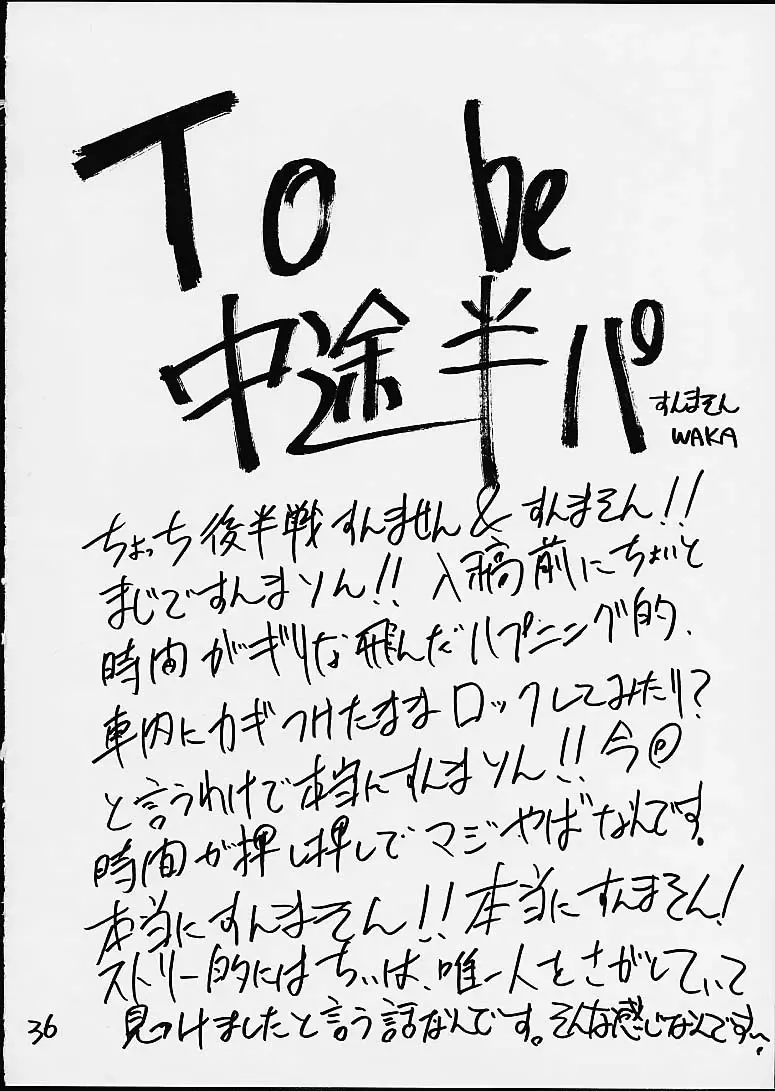 To be
中途半パ
すんません
WAKA
ちょっち後半戦すんません&すんません!!
まじですんません!! 入稿前にちょいと
時間がギリな飛んだハプニング的、
車内にカギつけたままロックしてみたり?
と言うわけで本当にすんません!! 今@
時間が押し押しでマジやばなんです。
本当にすんません!! 本当にすんません!
ストーリー的にはちぃは、唯一人をさがしてぃて
見つけましたと言う話なんです。そんな感じなんです〜。
36